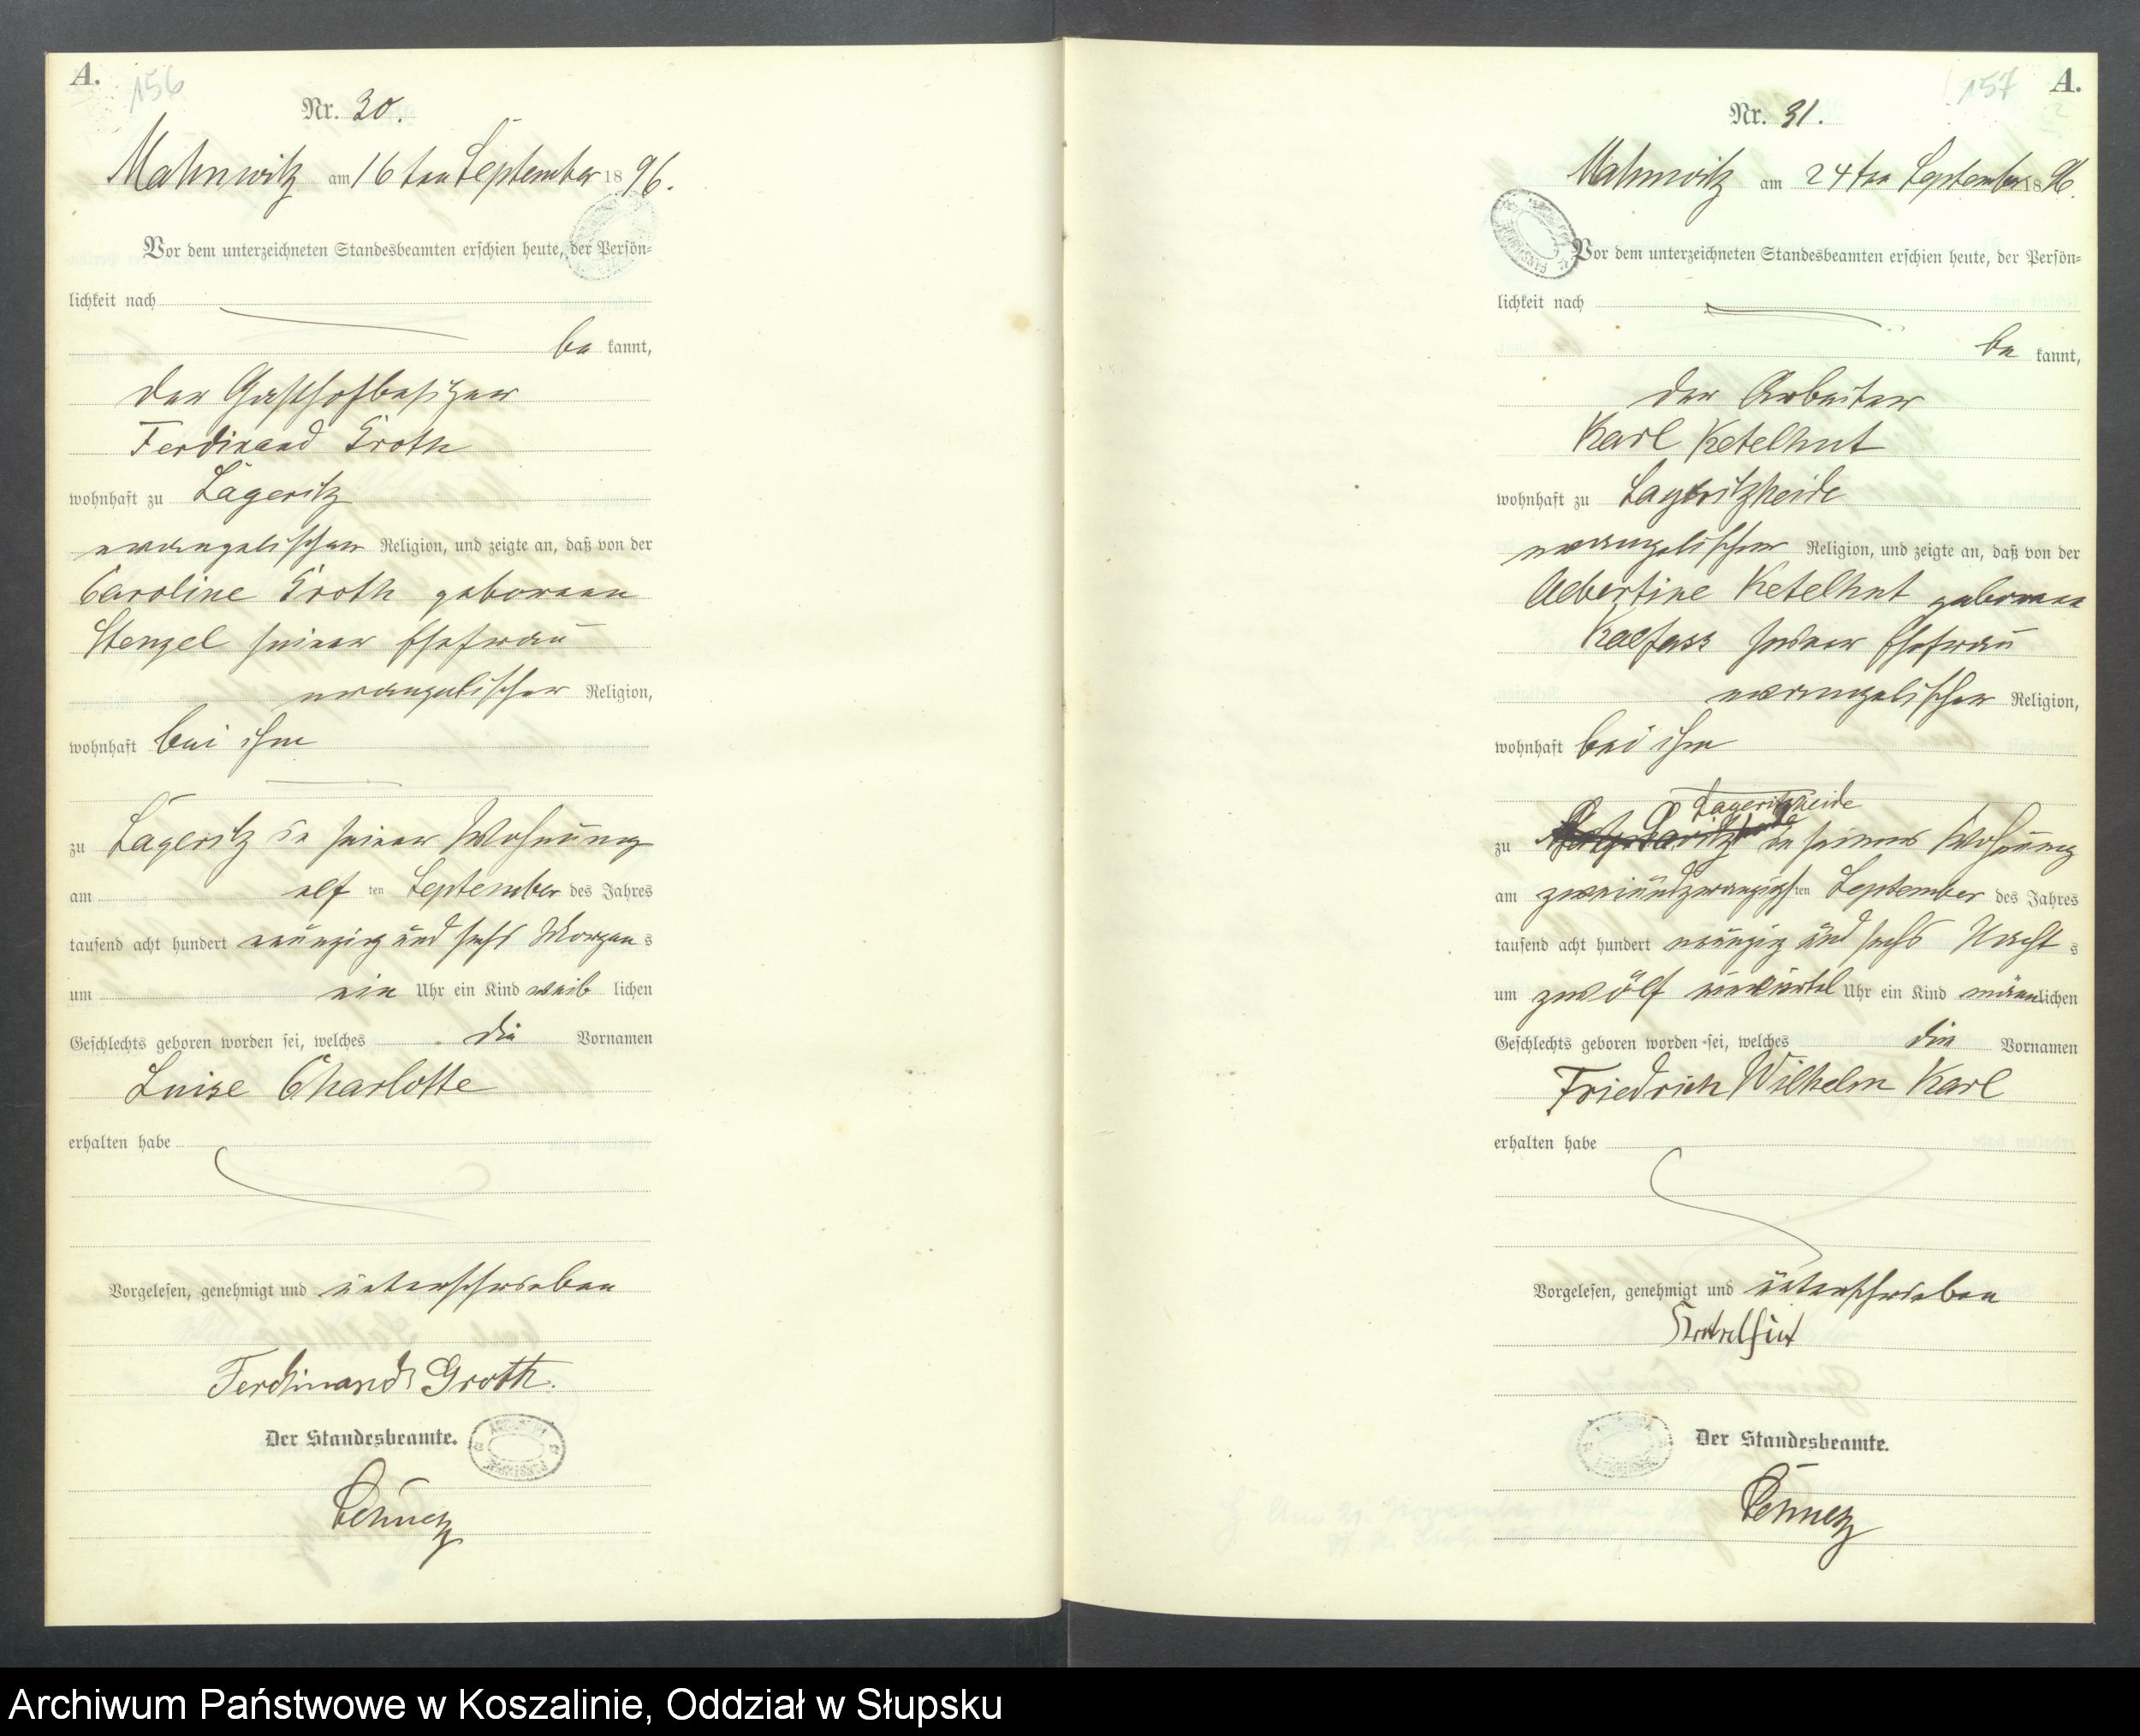 A.
156
Nr. 30.
Mahnwitz am 16ten September 1896.
Vor dem unterzeichneten Standesbeamten erschien heute, der Persön-
lichkeit nach
be kannt,
der Gasthofbesitzer
Ferdinand Groth
wohnhaft zu Lägeritz
evangelischer Religion, und zeigte an, daß von der
Caroline Groth geborenen
Stenzel seiner Ehefrau
evangelischer Religion,
wohnhaft bei ihm
zu Lägeritz in seiner Wohnung
am elf ten September des Jahres
tausend acht hundert neunzig und sechs Morgens
um ein Uhr ein Kind weib lichen
Geschlechts geboren worden sei, welches die Vornamen
Luise Charlotte
erhalten habe
Vorgelesen, genehmigt und unterschrieben
Ferdinand Groth.
Der Standesbeamte.
A.
157
Nr. 31.
Mahnwitz am 24ten September 1896.
Vor dem unterzeichneten Standesbeamten erschien heute, der Persön-
lichkeit nach
be kannt,
der Arbeiter
Karl Ketelhut
wohnhaft zu Lageritzheide
evangelischer Religion, und zeigte an, daß von der
Albertine Ketelhut geborenen
Kalfass seiner Ehefrau
evangelischer Religion,
wohnhaft bei ihm
Lageritzheide
zu in seiner Wohnung
am zweiundzwanzigsten September des Jahres
tausend acht hundert neunzig und sechs Nachts
um zwölf einviertel Uhr ein Kind männlichen
Geschlechts geboren worden sei, welches die Vornamen
Friedrich Wilhelm Karl
erhalten habe
Vorgelesen, genehmigt und unterschrieben
Ketelhut
Der Standesbeamte.
Archiwum Państwowe w Koszalinie, Oddział w Słupsku